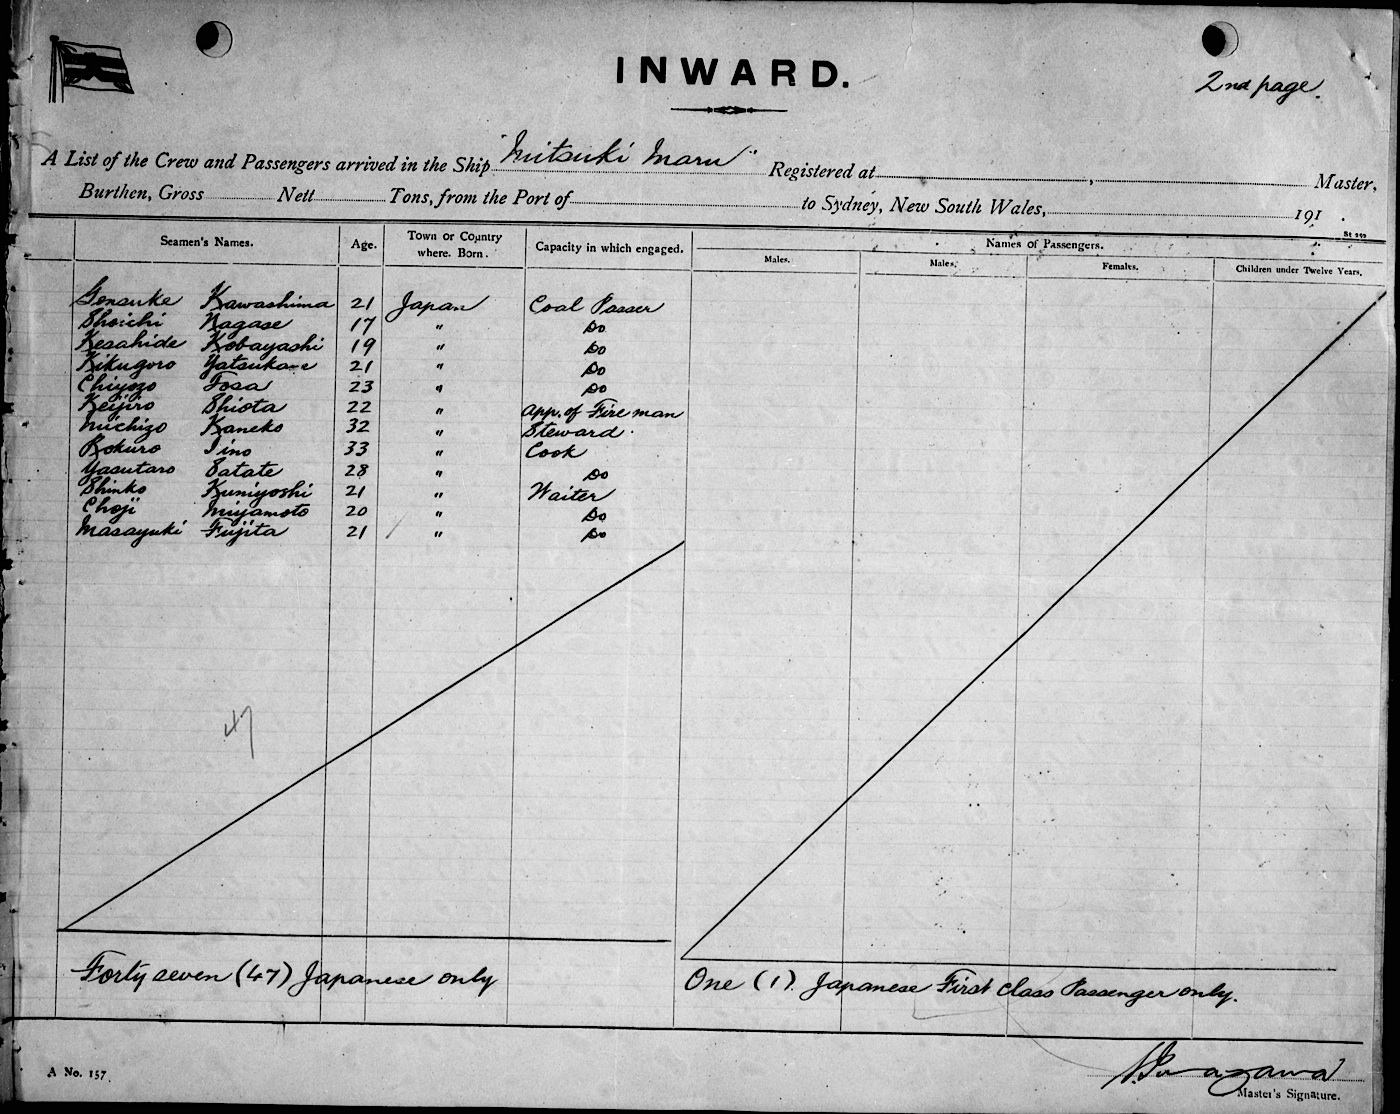 INWARD.
2nd page.
A List of the Crew and Passengers arrived in the Ship "Mitsuki Maru" Registered at , Master,
Burthen, Gross Nett Tons, from the Port of to Sydney, New South Wales, 191 .
Seamen's Names. Age. Town or Country where Born. Capacity in which engaged. Names of Passengers.
Males. Males. Females. Children under Twelve Years.
Gensuke Kawashima 21 Japan Coal Passer
Shoichi Nagase 17 " Do
Kesahide Kobayashi 19 " Do
Kikugoro Yatsukane 21 " Do
Chiyozo Tosa 23 " Do
Keijiro Shiota 22 " app. of Fireman
Michizo Kaneko 32 " Steward
Rokuro Iino 33 " Cook
Yasutaro Satate 28 " Do
Shinko Kuniyoshi 21 " Waiter
Choji Miyamoto 20 " Do
Masayuki Fujita 21 " Do
47
Forty seven (47) Japanese only
One (1) Japanese First class Passenger only.
A No. 157.
Master's Signature.